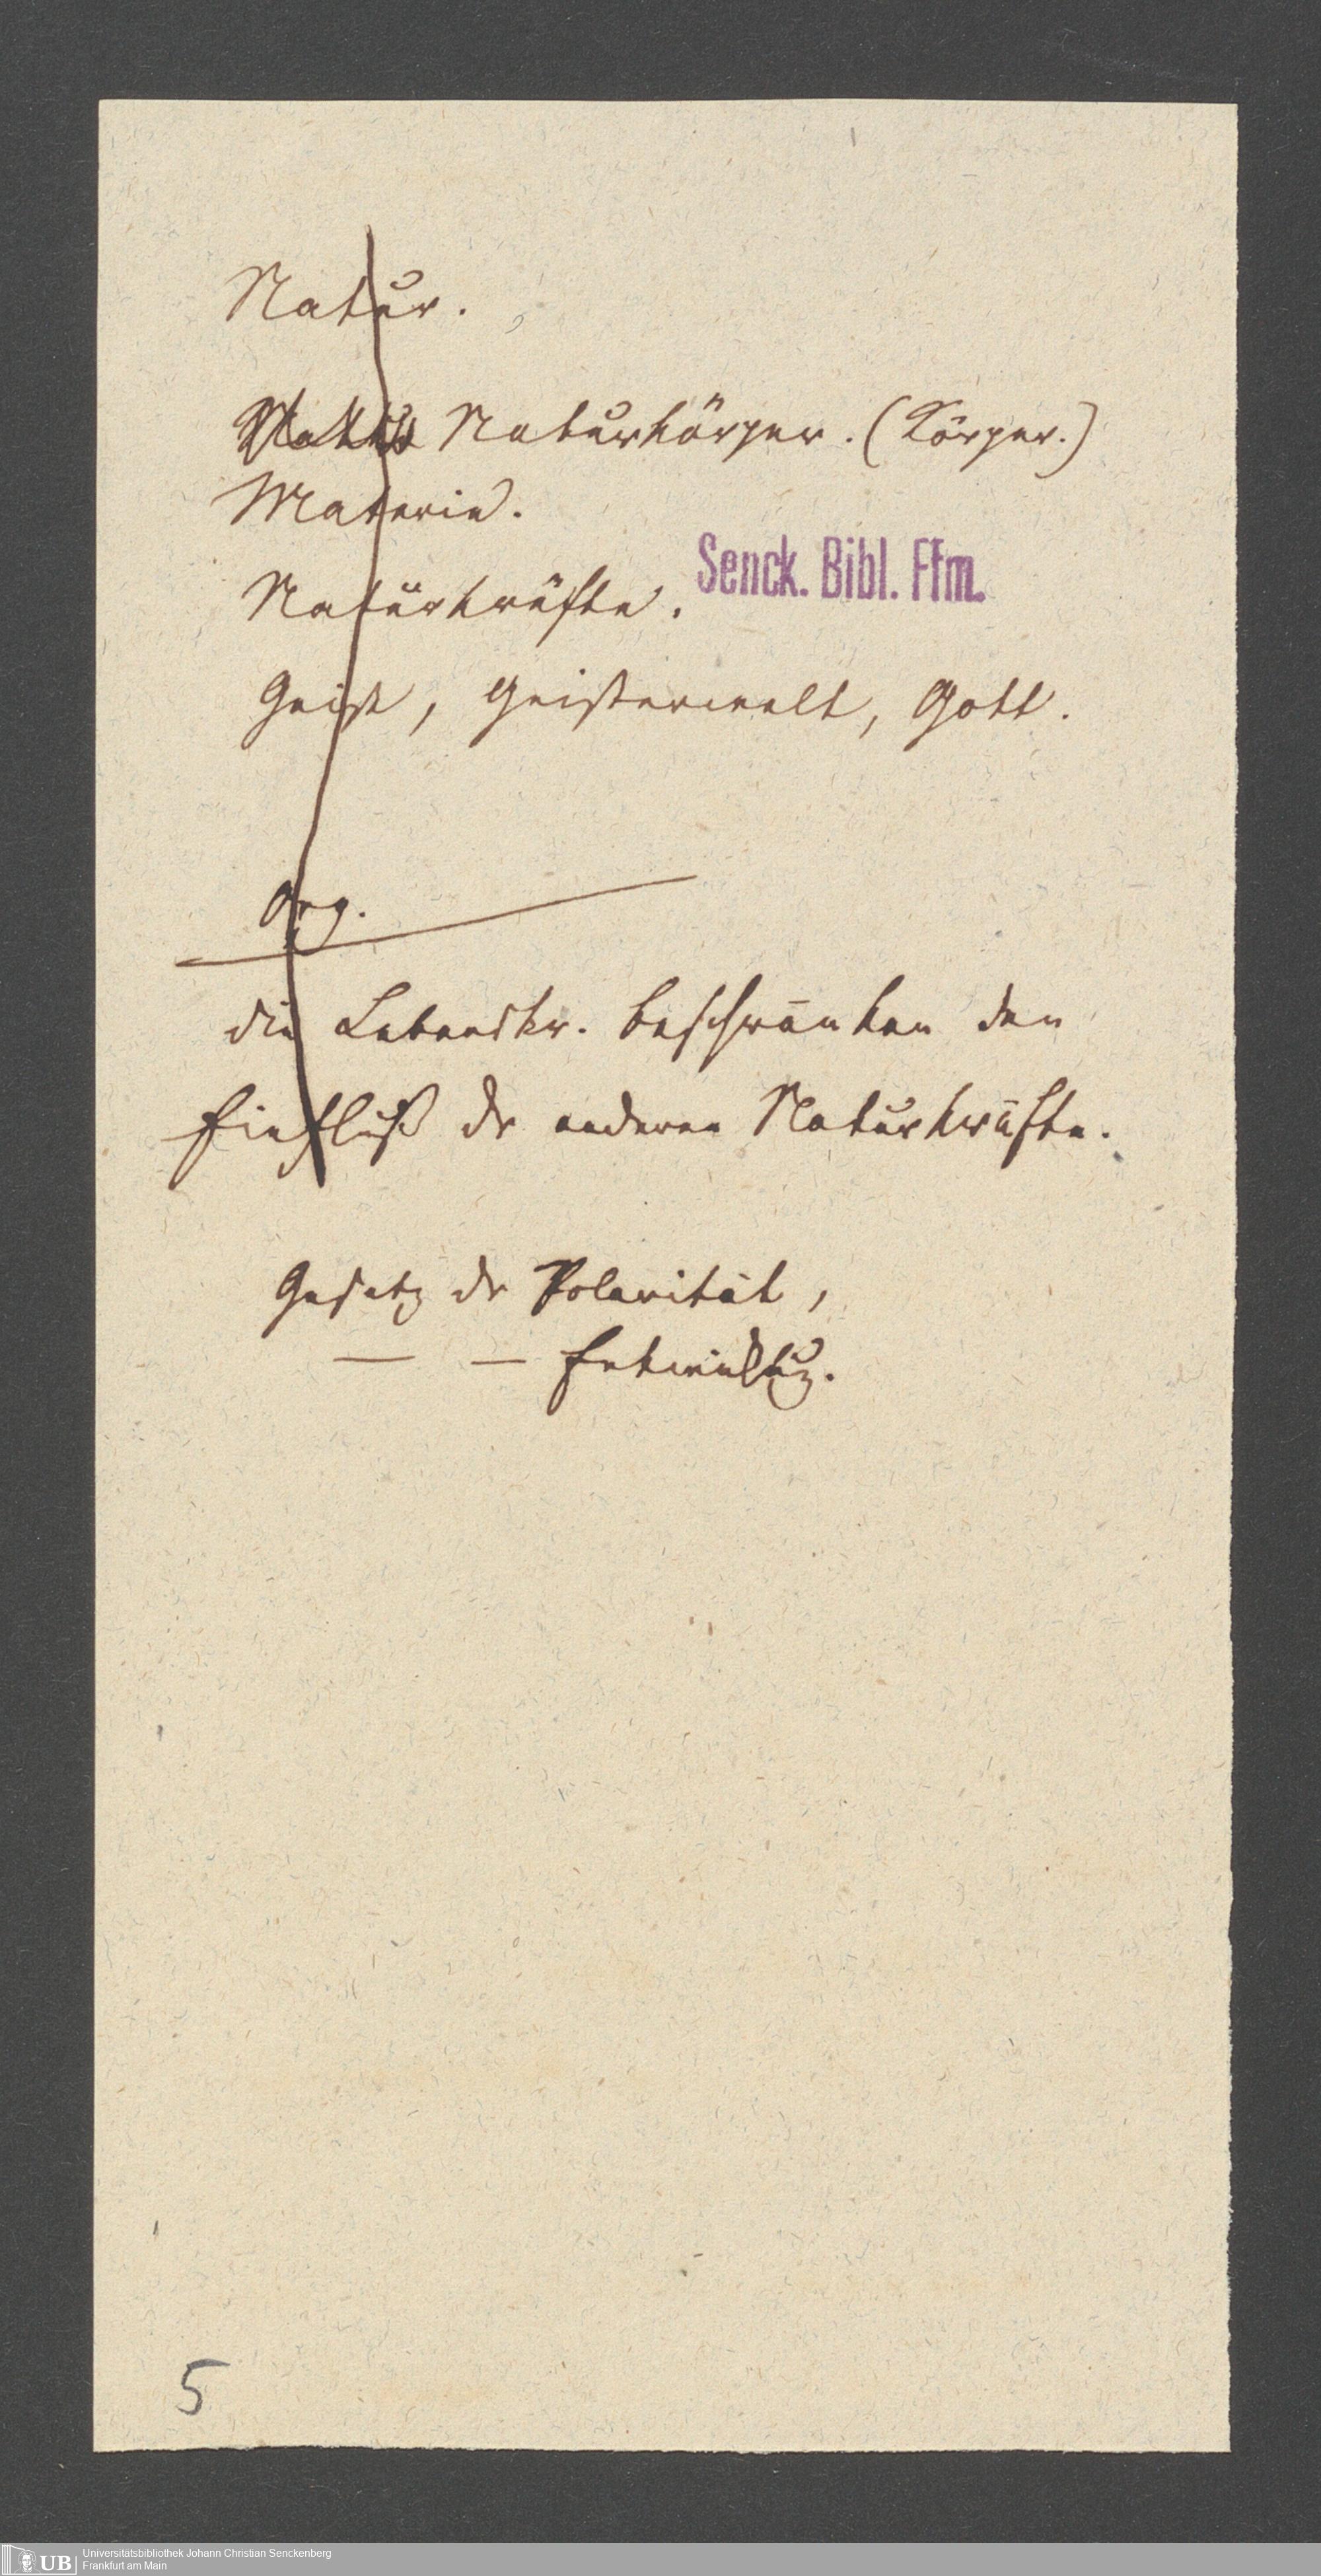 Natur.
Naturkörper. (Körper.)
Materie.
Naturkräfte.
Senck. Bibl. Ffm.
Geist, Geisterwelt, Gott.
Org.
die Lebenskr. beschränken den
Einfluß dr anderen Naturkräfte.
Gesetz dr Polarität,
— — Entwicklung.
5
UB
Universitätsbibliothek Johann Christian Senckenberg
Frankfurt am Main